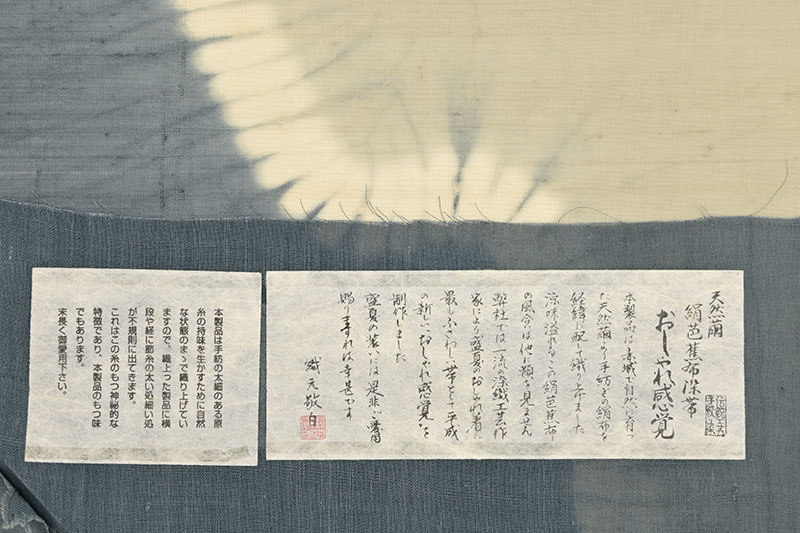 天然繭
絹芭蕉布染帯
おしゃれ感覚
伝統工芸
手織り染
本製品は赤城で自然に育っ
た天然繭より手紡ぎの絹糸を
経緯に配して織り上げました
涼味溢れるこの絹芭蕉布
の風合は他に類を見ません
弊社では一流の染織工芸作
家により盛夏のおしゃれ着に
最もふさわしい帯として平成
の新しいおしゃれ感覚を
制作しました
盛夏の装いには是非ご着用
賜りますれば幸甚です
織元敬白
本製品は手紡の太細のある原
糸の持味を生かすために自然
な状態のまゝで織り上げてい
ますので、織上った製品に横
段や経に節糸の太い処細い処
が不規則に出てきます。
これはこの糸のもつ神秘的な
特徴であり、本製品のもつ味
でもあります。
末長く御愛用下さい。